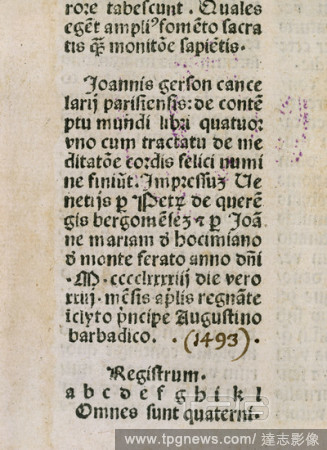 rore tabescunt. Quales
egēt ampliꝰ fomēto sacra
tis qꝫ monitōe sapiētis.
Joannis gerson cance
larij parisiēsis: de contē
ptu mūdi libri quatuor
vno cum tractatu de me
ditatōe cordis felici numi
ne finiūt. Impressuꝫ Ue
netijs ꝑ Petꝝ de querēn
gis bergomēseꝫ ⁊ ꝑ Joā
ne mariam đ hocimiano
đ monte ferato anno dn̄i
.M.cccclxxxxiij die vero
xxiij. mēsis apͥlis regnāte
iclyto pͥncipe Augustino
barbadico. . (1493) .
Registrum.
a b c d e f g h i k l
Omnes sunt quaterni.
www.tpgnews.com/ 達志影像